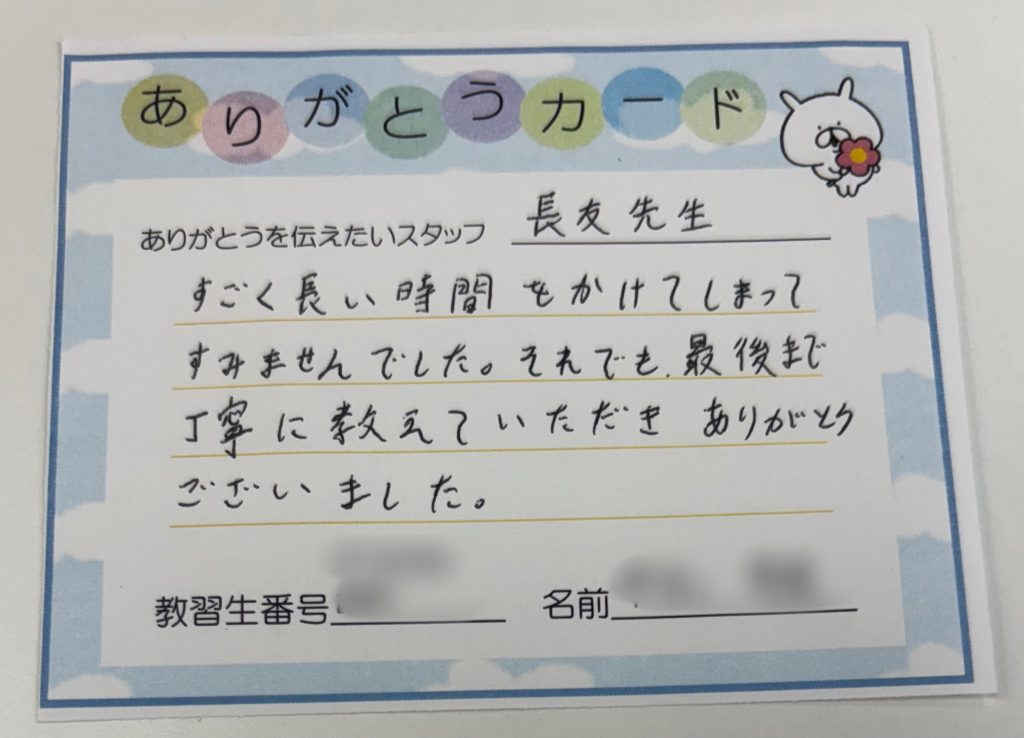 ありがとうカード
ありがとうを伝えたいスタッフ 長友先生
すごく長い時間をかけてしまって
すみませんでした。それでも、最後まで
丁寧に教えていただき ありがとう
ございました。
教習生番号 名前